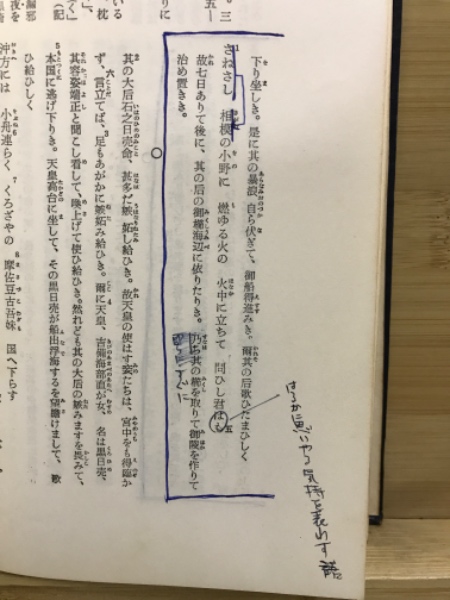 下り坐しき。是に其の暴浪自ら伏ぎて、御船得進みき。爾其の后歌ひたまひしく
さねさし 相模の小野に 燃ゆる火の 火中に立ちて 問ひし君はも
故七日ありて後に、其の后の御櫛海辺に依りたりき。乃ち其の櫛を取りて御陵を作りて
治め置きき。
其の大后石之日売命、甚多だ嫉妬し給ひき。故天皇の使はす妾たちは、宮中をも得臨か
ず、言立てば、足もあがかに嫉妬み給ひき。爾に天皇、吉備海部直が女、名は黒日売、
其容姿端正と聞こし看して、喚上げて使ひ給ひき。然れども其の大后の嫉みますを畏みて、
本国に逃げ下りき。天皇高台に坐して、その黒日売が船出浮海するを望瞻けまして、歌
ひ給ひしく
沖方には 小舟連らく くろざやの 摩佐豆古吾妹 国へ下らす
はるかに思いやる気持を表わす